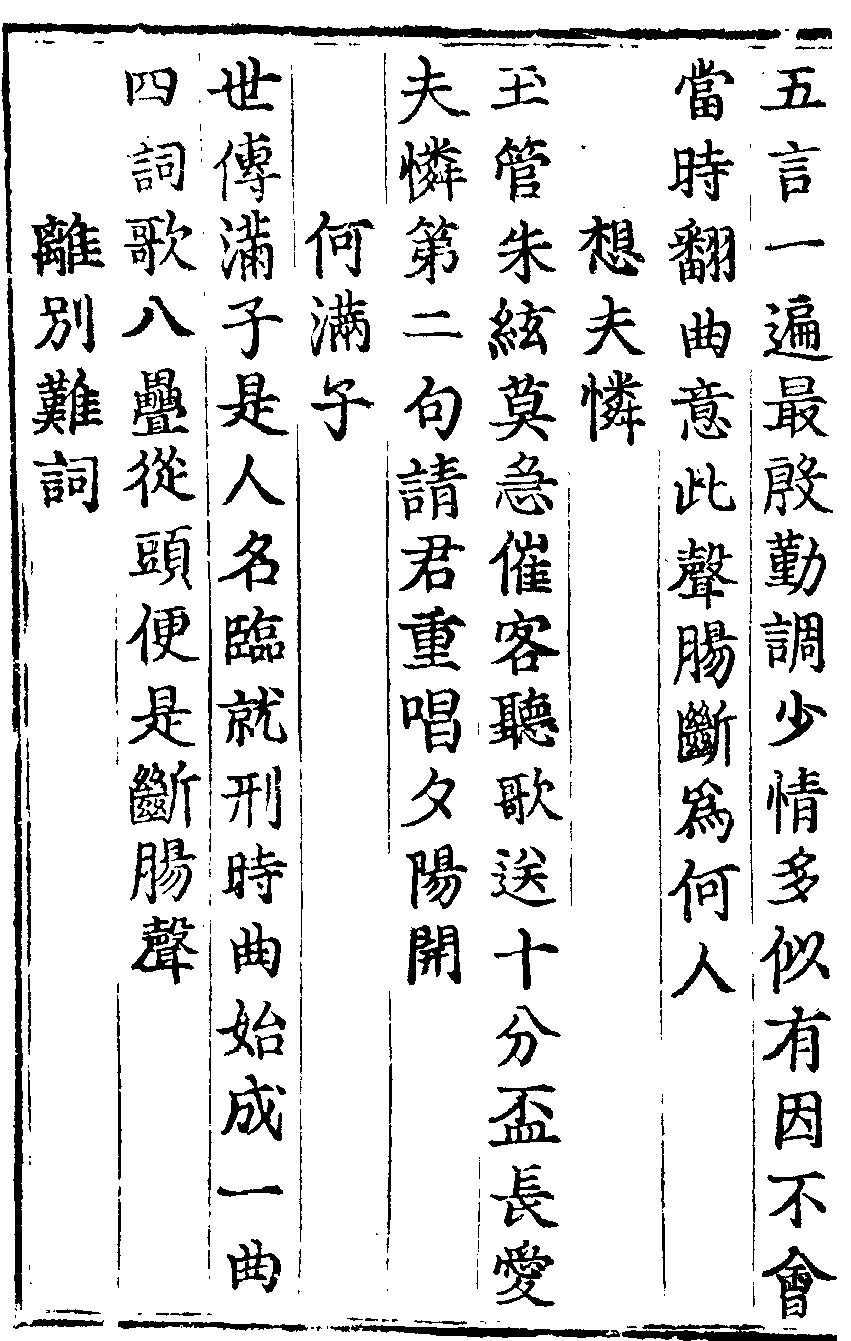 五言一遍最殷勤調少情多似有因不會
當時翻曲意此聲腸斷爲何人
想夫憐
玉管朱絃莫急催客聽歌送十分盃長愛
夫憐第二句請君重唱夕陽開
何滿子
世傳滿子是人名臨就刑時曲始成一曲
四詞歌八疊從頭便是斷腸聲
離別難詞